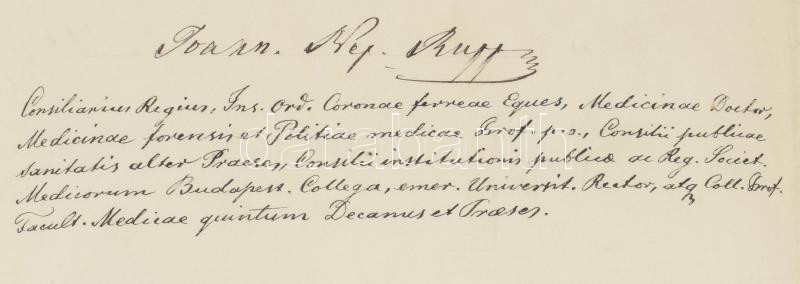 Joann. Nep. Rupp
Consiliarius Regius, Ins. Ord. Coronae ferreae Eques, Medicinae Doctor,
Medicinae forensis et Politiae medicae Prof. p. o., Consilii publicae
sanitatis alter Praeses, Consilii institutionis publicae ac Reg. Societ.
Medicorum Budapest. Collega, emer. Universit. Rector, atq Coll. Prof.
Facult. Medicae quintum Decanus et Præses.
darabanth